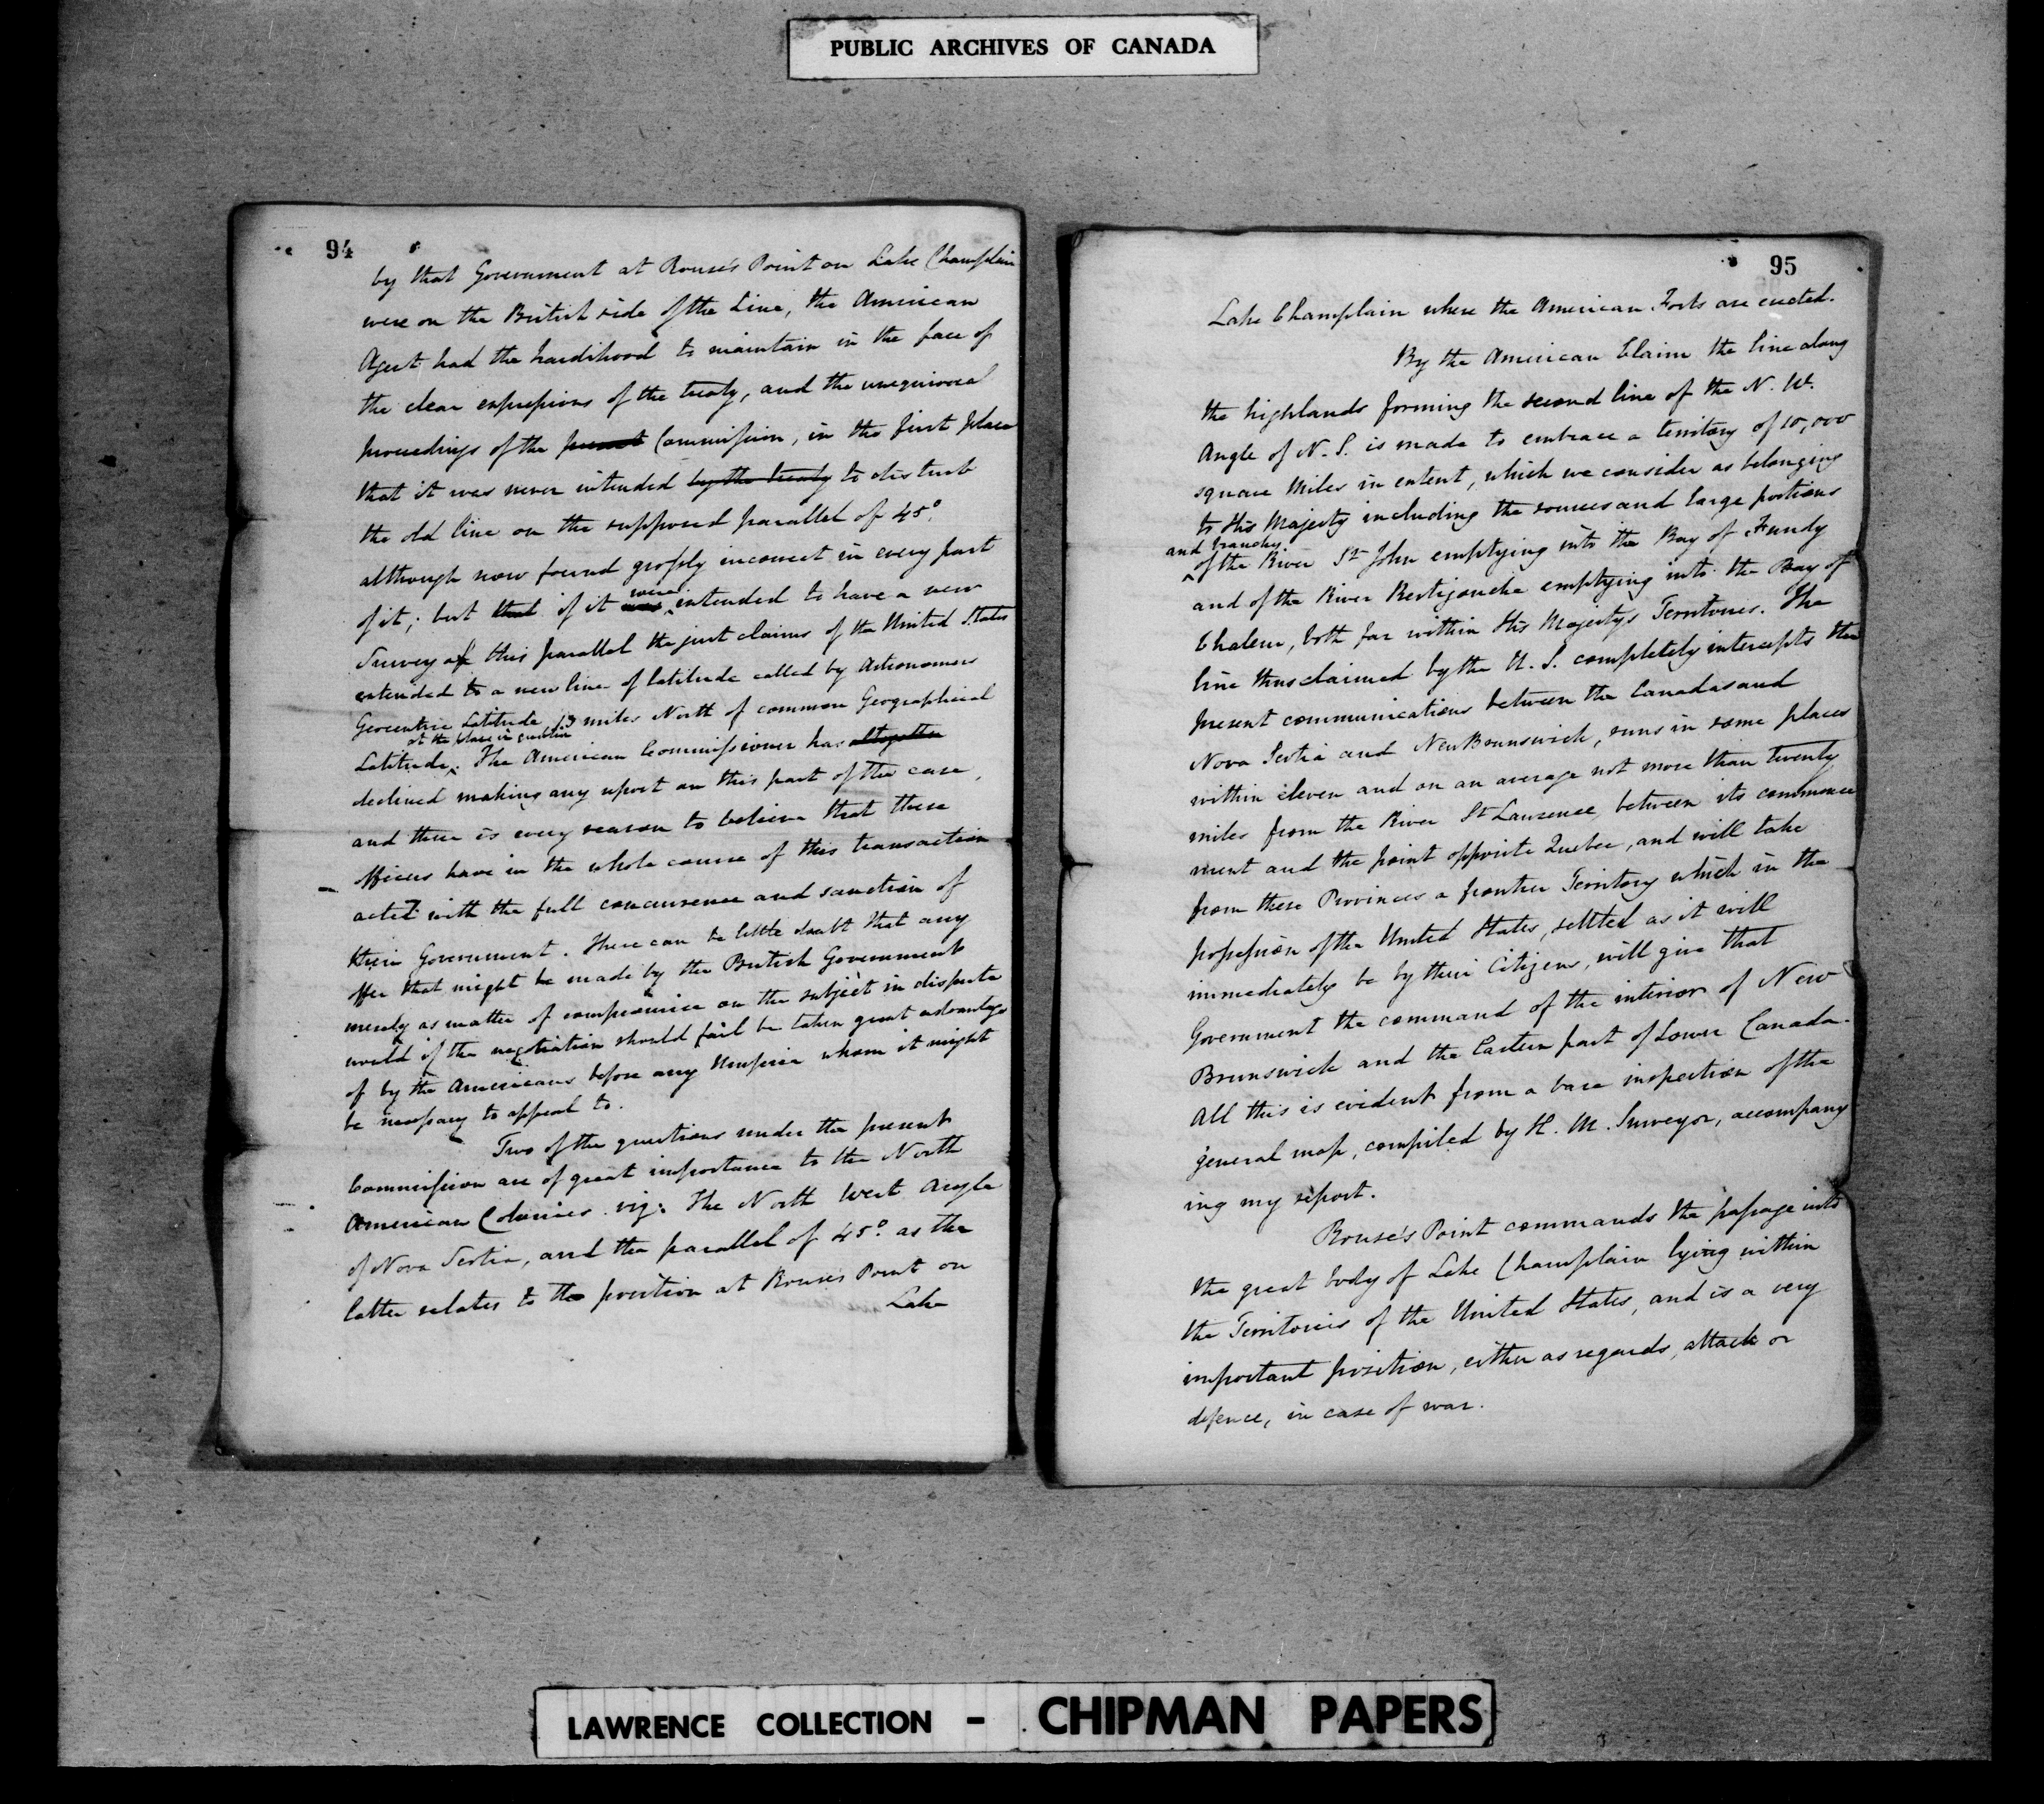 PUBLIC ARCHIVES OF CANADA
94
by that Government at Rouse's Point on Lake Champlain
were on the British side of the Line, the American
Agent had the hardihood to maintain in the face of
the clear expressions of the treaty, and the unequivocal
proceedings of the present Commission, in the first place
that it was never intended by the treaty to disturb
the old line on the supposed parallel of 45°.
although now found grossly incorrect in every part
were
of it; but that if it was intended to have a new
Survey of this parallel the just claims of the United States
extended to a new line of latitude called by Astronomers
Geocentric Latitude, 13 miles North of common Geographical
at the place in question
Latitude. The American Commissioner has altogether
declined making any report on this part of the case,
and there is every reason to believe that these
officers have in the whole course of this transaction
acted with the full concurrence and sanction of
their Government. There can be little doubt that any
offer that might be made by the British Government
merely as matter of compromise on the subject in dispute
would if the negotiation should fail be taken great advantage
of by the Americans before any Umpire whom it might
be necessary to appeal to.
Two of the questions under the present
Commission are of great importance to the North
American Colonies viz: The North West Angle
of Nova Scotia, and the parallel of 45°. as the
latter relates to the position at Rouses Point on
Lake
95
Lake Champlain where the American Forts are erected.
By the American Claim the line along
the highlands forming the second line of the N. W.
Angle of N. S. is made to embrace a territory of 10,000
square Miles in extent, which we consider as belonging
to His Majesty including the sources and large portions
and branches
of the River St John emptying into the Bay of Fundy
and of the River Restigouche emptying into the Bay of
Chaleur, both far within His Majestys Territories. The
line thus claimed by the U. S. completely intercepts the
present communications between the Canadas and
Nova Scotia and New Brunswick, runs in some places
within eleven and on an average not more than twenty
miles from the River St Laurence, between its commence
ment and the point opposite Quebec, and will take
from these Provinces a frontier Territory which in the
possession of the United States, settled as it will
immediately be by their Citizens, will give that
Government the command of the interior of New
Brunswick and the Eastern part of Lower Canada.
All this is evident from a bare inspection of the
general map, compiled by H. M. Surveyor, accompany
ing my report.
Rouse's Point commands the passage into
the great body of Lake Champlain lying within
the Territories of the United States, and is a very
important position, either as regards attack or
defence, in case of war.
LAWRENCE COLLECTION - CHIPMAN PAPERS